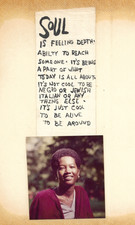 SOUL
IS FEELING DEPTH.
ABILITY TO REACH
SOMEONE. IT'S BEING
A PART OF WHAT
TODAY IS ALL ABOUT.
IT'S NOT COOL TO BE
NEGRO OR JEWISH
ITALIAN OR ANY
THING ELSE.
IT'S JUST COOL
TO BE ALIVE
TO BE AROUND